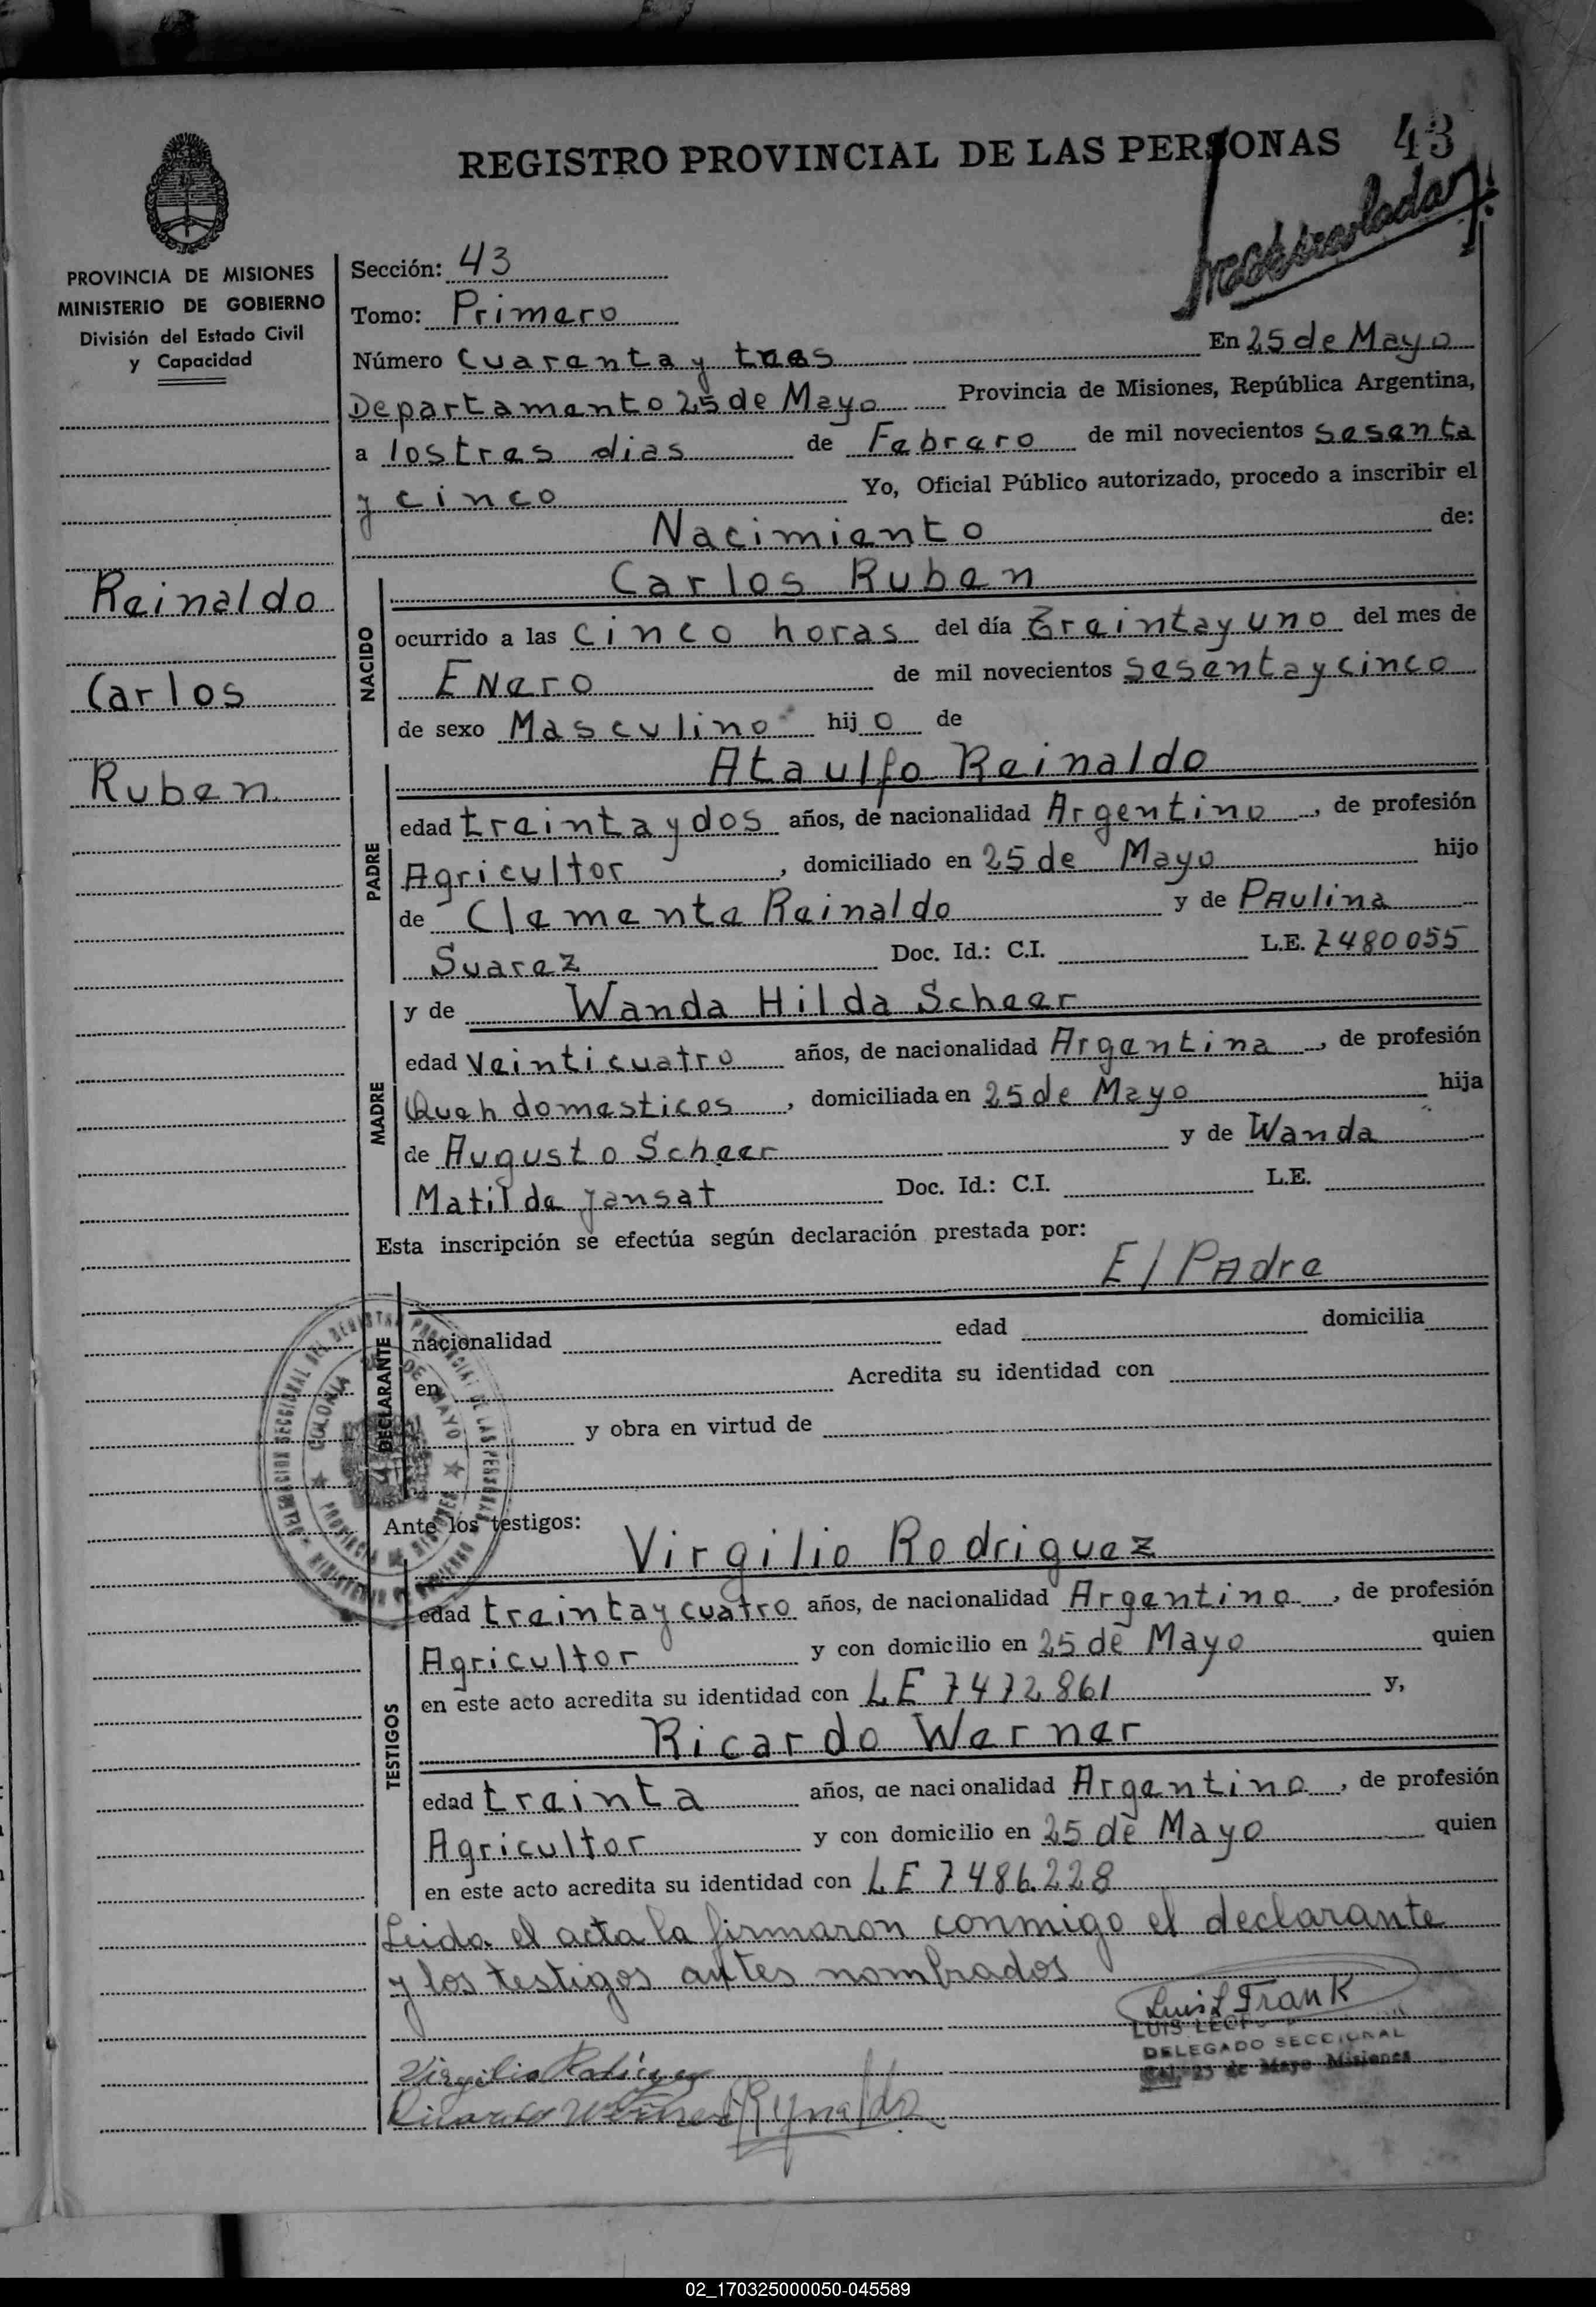 REGISTRO PROVINCIAL DE LAS PERSONAS 43
PROVINCIA DE MISIONES
MINISTERIO DE GOBIERNO
División del Estado Civil
y Capacidad
Reinaldo
Carlos
Ruben
Sección: 43
Tomo: Primero
Número Cuarenta y tres En 25 de Mayo
Departamento 25 de Mayo Provincia de Misiones, República Argentina,
a los tres dias de Febrero de mil novecientos sesenta
y cinco Yo, Oficial Público autorizado, procedo a inscribir el
Nacimiento de:
Carlos Ruben
NACIDO
ocurrido a las cinco horas del día Treinta y uno del mes de
Enero de mil novecientos sesenta y cinco
de sexo Masculino hijo de
Ataulfo Reinaldo
PADRE
edad treinta y dos años, de nacionalidad Argentino, de profesión
Agricultor, domiciliado en 25 de Mayo hijo
de Clemente Reinaldo y de Paulina
Suarez Doc. Id.: C.I. L.E. 7480055
y de Wanda Hilda Scheer
MADRE
edad Veinticuatro años, de nacionalidad Argentina, de profesión
Queh domesticos, domiciliada en 25 de Mayo hija
de Augusto Scheer y de Wanda
Matilde Jansat Doc. Id.: C.I. L.E.
Esta inscripción se efectúa según declaración prestada por:
El Padre
DECLARANTE
nacionalidad edad domicilia
en Acredita su identidad con
y obra en virtud de
COLONIA 25 DE MAYO
PROVINCIA DE MISIONES
Ante los testigos:
Virgilio Rodriguez
TESTIGOS
edad treinta y cuatro años, de nacionalidad Argentino, de profesión
Agricultor y con domicilio en 25 de Mayo quien
en este acto acredita su identidad con LE 7472861 y,
Ricardo Werner
edad treinta años, de nacionalidad Argentino, de profesión
Agricultor y con domicilio en 25 de Mayo quien
en este acto acredita su identidad con LE 7486.228
Leida el acta la firmaron conmigo el declarante
y los testigos antes nombrados
Luis L Frank
LUIS
DELEGADO SECCIONAL
Col. 25 de Mayo Misiones
Virgilio Rodriguez
Ricardo Werner Reynaldo
02_170325000050-045589